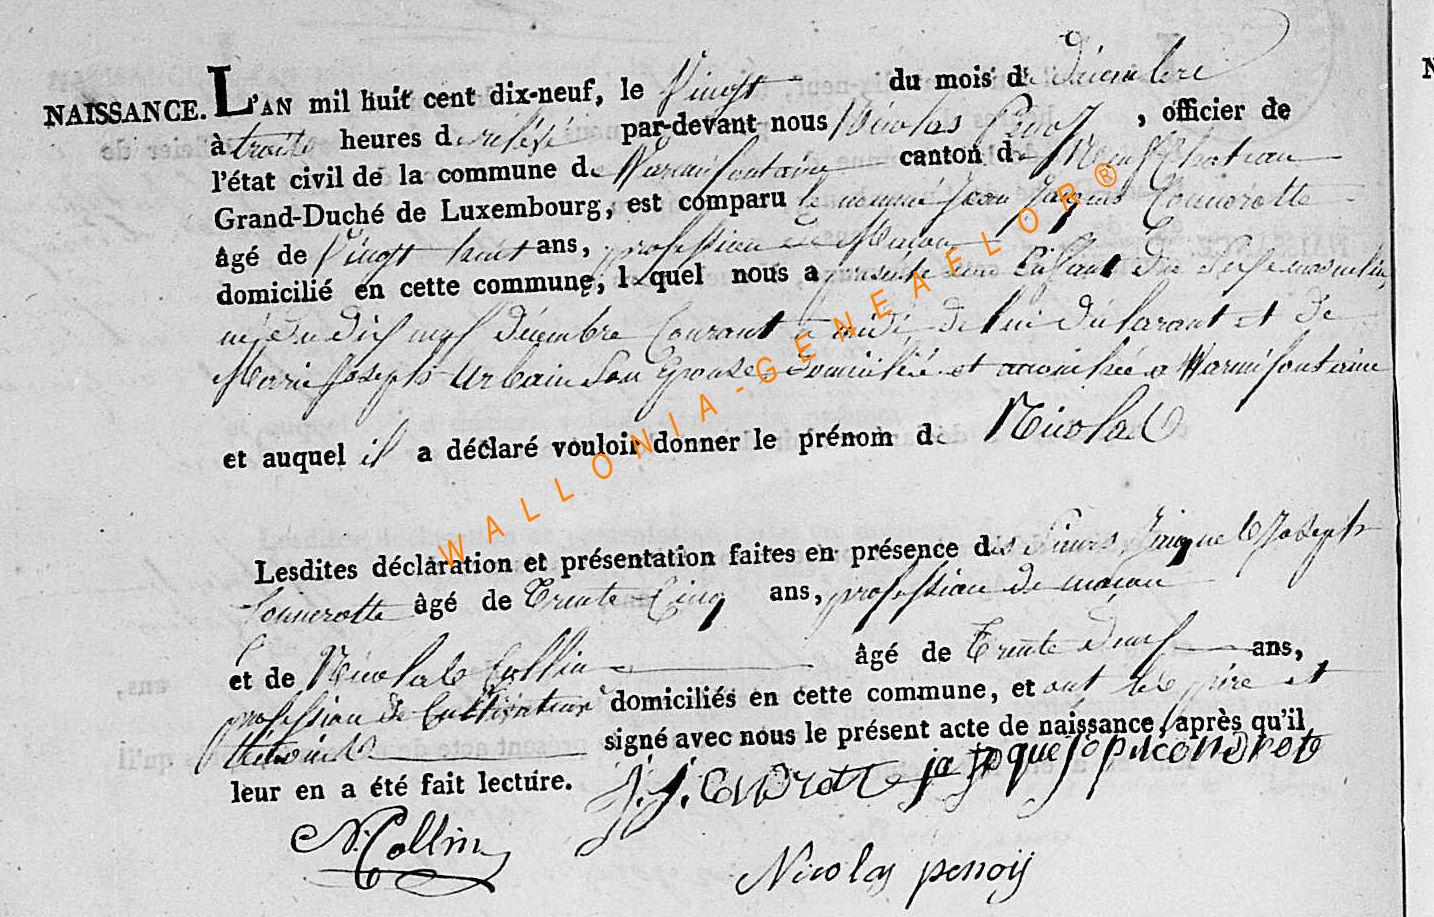 NAISSANCE. L'AN mil huit cent dix-neuf, le Vingt du mois de décembre
à trois heures de relevée par-devant nous Nicolas Penoy, officier de
l'état civil de la commune de Warmifontaine canton de Neufchateau
Grand-Duché de Luxembourg, est comparu le nommé Jean Jaques Connerotte
âgé de Vingt huit ans, profession de Macon
domicilié en cette commune, lequel nous a présenté un Enfant du Sexe masculin,
né du dix neuf décembre Courant à midi, de lui déclarant et de
Marie Joseph Urbain Son Epouse, Domicilié et accouchée a Warmifontaine
et auquel il a déclaré vouloir donner le prénom de Nicolas
Lesdites déclaration et présentation faites en présence des Sieurs Jaque Joseph
Connerotte âgé de Trente Cinq ans, profession de macon
et de Nicolas Collin âgé de Trente deux ans,
profession de Cultivateur domiciliés en cette commune, et ont les père et
témoins signé avec nous le présent acte de naissance, après qu'il
leur en a été fait lecture. J. J. Conrotte jaque josep conorote
N. Collin
Nicolas penoy
WALLONIA-GENEAFLOR®